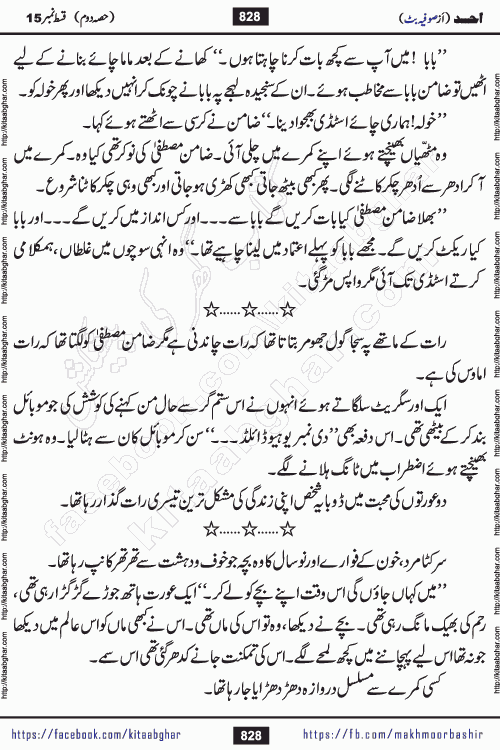 احمد (از صوفیہ بٹ) 828 (حصہ دوم) قسط نمبر 15
’’بابا! میں آپ سے کچھ بات کرنا چاہتا ہوں۔‘‘ کھانے کے بعد ماما چائے بنانے کے لیے
اٹھیں تو ضامن بابا سے مخاطب ہوئے۔ ان کے سنجیدہ لہجے پہ بابا نے چونک کر انہیں دیکھا اور پھر خولہ کو۔
’’خولہ! ہماری چائے اسٹڈی بھجوا دینا۔‘‘ ضامن نے کرسی سے اٹھتے ہوئے کہا۔
وہ مٹھیاں بھینچتے ہوئے اپنے کمرے میں چلی آئی۔ ضامن مصطفیٰ کی نوکر تھی کیا وہ۔ کمرے میں
آ کر ادھر سے اُدھر چکر کاٹنے لگی۔ پھر بھی بیٹھ جاتی کبھی کھڑی ہو جاتی اور کبھی وہی چکر کاٹنا شروع۔
’’بھلا ضامن مصطفیٰ کیا بات کریں گے بابا سے۔۔۔اور کس انداز میں کریں گے۔۔۔اور بابا
کیا ریکٹ کریں گے۔ مجھے بابا کو پہلے اعتماد میں لینا چاہیے تھا۔‘‘ وہ انہی سوچوں میں غلطاں، ہمکلامی
کرتے اسٹڈی تک آئی مگر واپس مڑ گئی۔
☆......☆......☆
رات کے ماتھے پہ سجا گول جھومر بتاتا تھا کہ رات چاندنی ہے مگر ضامن مصطفیٰ کو لگتا تھا کہ رات
اماوس کی ہے۔
ایک اور سگریٹ سلگاتے ہوئے انہوں نے اس ستم گر سے حال من کہنے کی کوشش کی جو موبائل
بند کر کے بیٹھی تھی۔ اس دفعہ بھی ’’دی نمبر یو ہیو ڈائلڈ۔۔۔‘‘ سن کر موبائل کان سے ہٹا لیا۔ وہ ہونٹ
بھینچتے ہوئے اضطراب میں ٹانگ ہلانے لگے۔
دو عورتوں کی محبت میں ڈوبا یہ شخص اپنی زندگی کی مشکل ترین تیسری رات گذار رہا تھا۔
☆......☆......☆
سر کٹا مرد، خون کے فوارے اور نو سال کا وہ بچہ جو خوف و دہشت سے تھر تھر کانپ رہا تھا۔
’’میں کہاں جاؤں گی اس وقت اپنے بچے کو لے کر۔‘‘ ایک عورت ہاتھ جوڑے گڑگڑا رہی تھی،
رحم کی بھیک مانگ رہی تھی۔ بچے نے دیکھا، وہ تو اس کی ماں تھی۔ اس نے کبھی ماں کو اس عالم میں دیکھا
جو نہ تھا اس لیے پہچاننے میں کچھ لمحے لگے۔ اس کی تمکنت جانے کدھر گئی تھی اس سمے۔
کسی کمرے سے مسلسل دروازہ دھڑ دھڑایا جا رہا تھا۔
https://facebook.com/kitaabghar 828 https://fb.com/makhmoorbashir
http://kitaabghar.com
facebook.com/kitaabghar